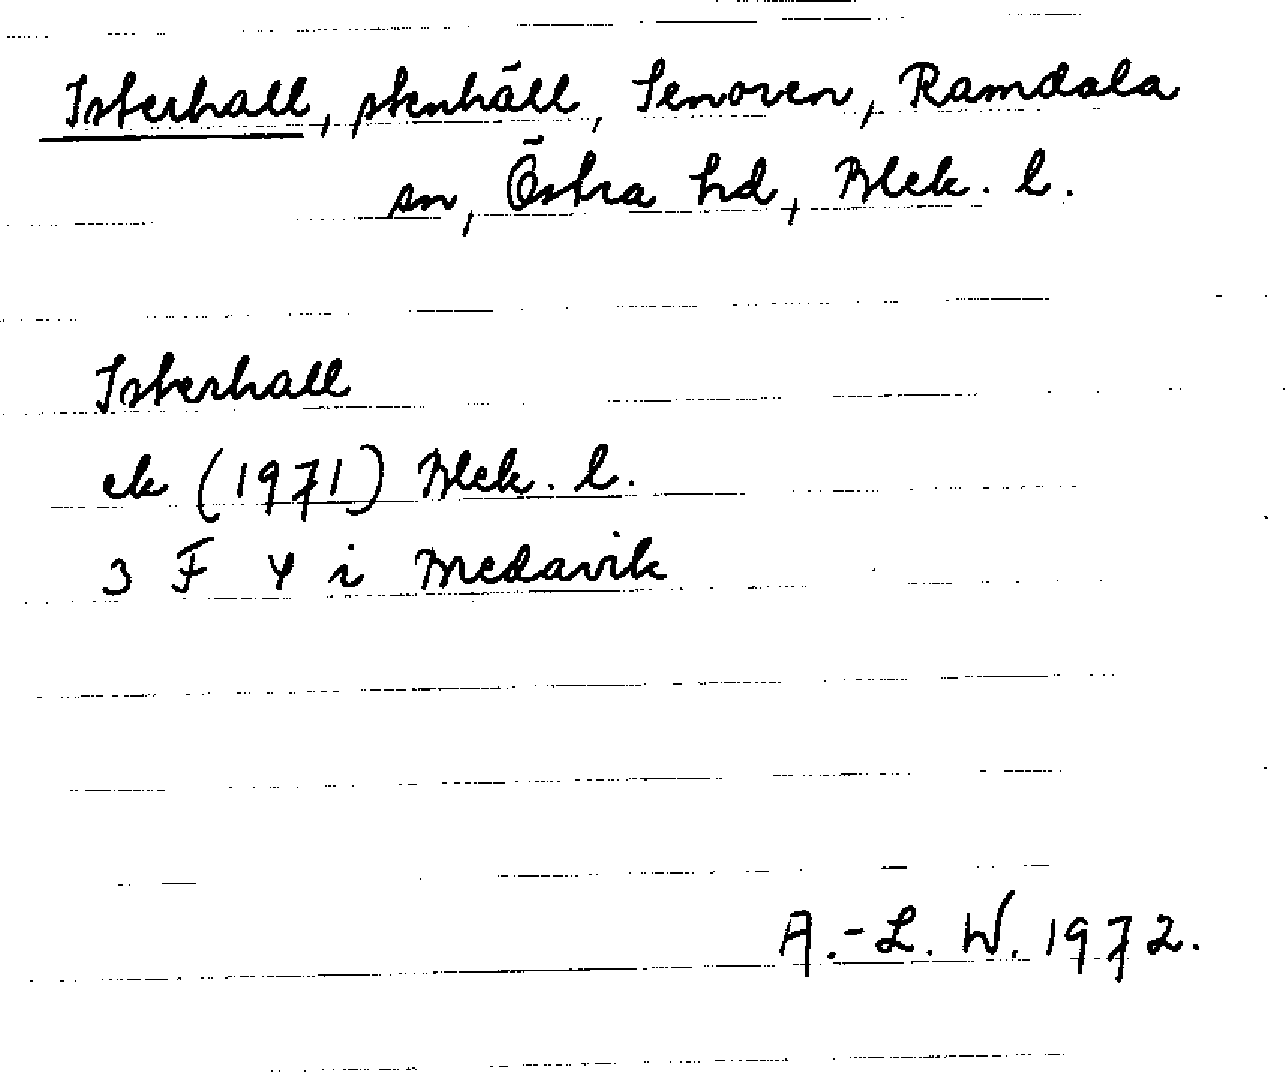 Isterhall, stenhäll, Senoren, Ramdala
sn, Östra hd, Blek. l.
Isterhall
ek (1971) Blek. l.
3 F Y i Medavik
A.-L. W. 1972.